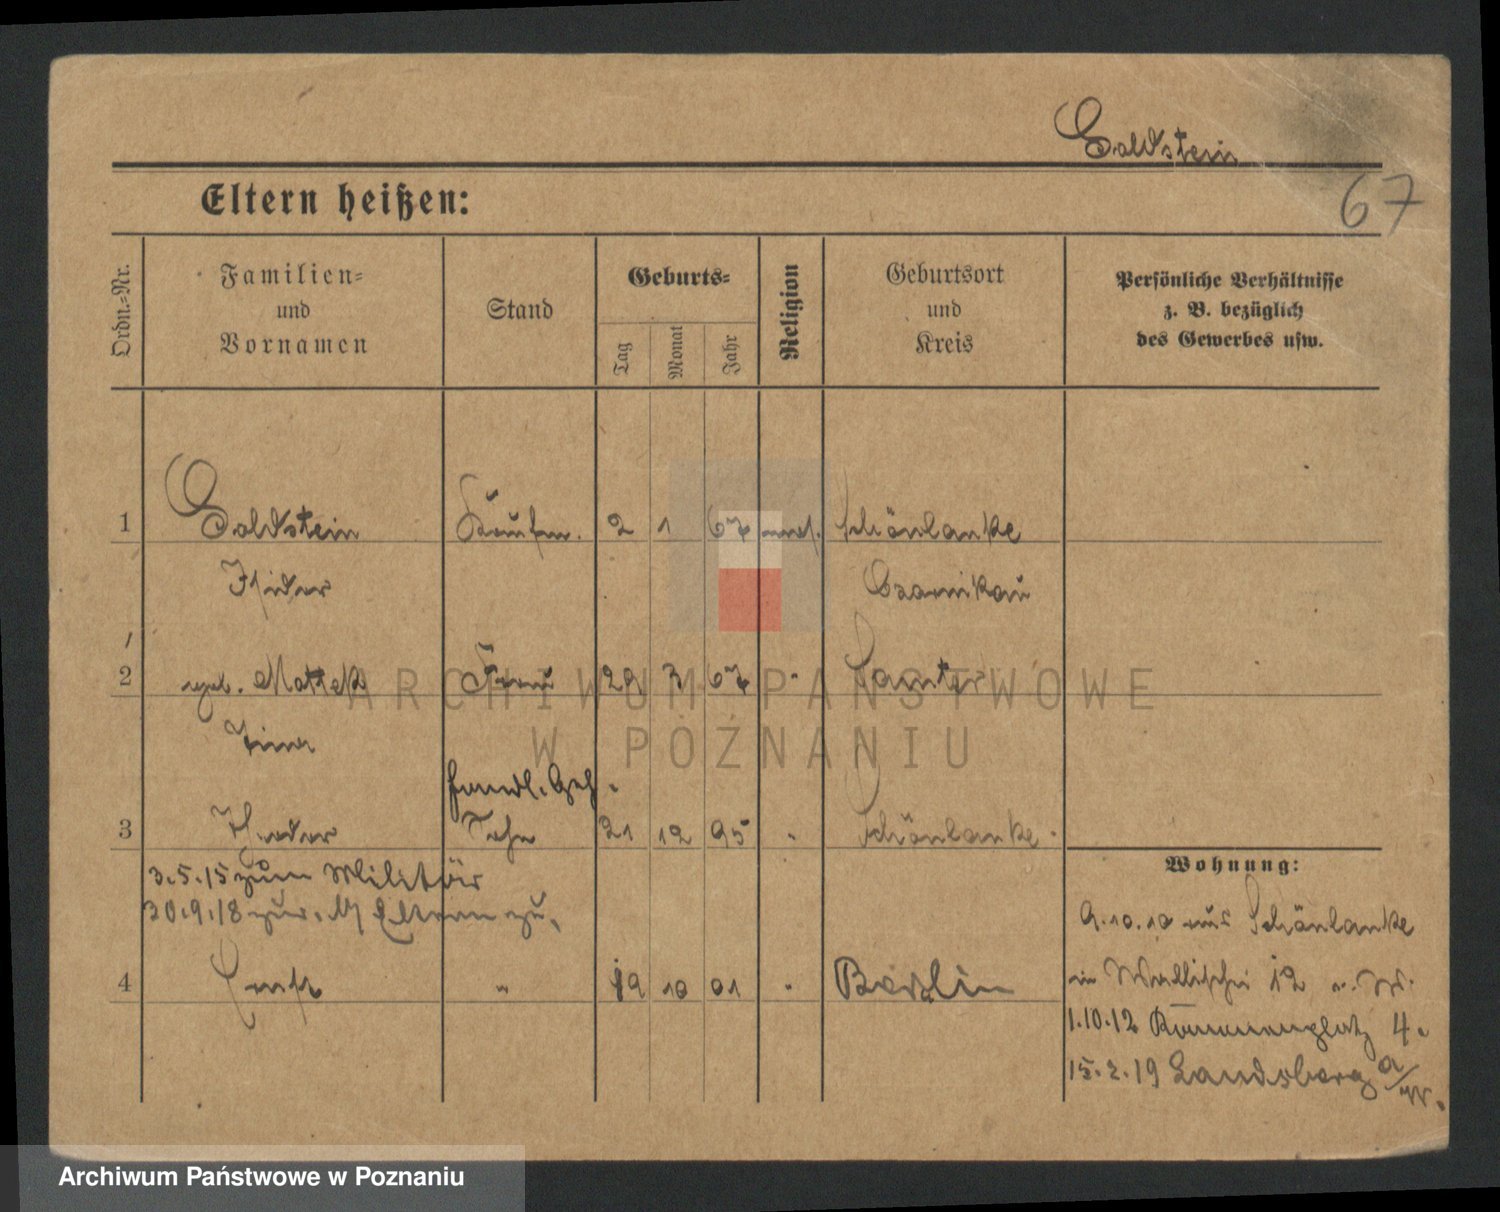 Goldstein
67
Eltern heißen:
Ordn.-Nr.
Familien-
und
Vornamen
Stand
Geburts-
Tag
Monat
Jahr
Religion
Geburtsort
und
Kreis
Persönliche Verhältnisse
z. B. bezüglich
des Gewerbes usw.
1 Goldstein Kaufm. 2 1 67 mos. Schönlanke
Isidor Czarnikau
2 geb. Mottek Frau 29 3 67 " Samter
Handl. Geh.
3 Sohn 21 12 95 " Schönlanke
3.5.15 zum Militär
30.9.18 zur. Eltern zu.
4 " 19 10 01 " Berlin
Wohnung:
9.10.10 aus Schönlanke
in Wallischei 12
1.10.12 4.
15.2.19 Landsberg a/W.
ARCHIWUM PAŃSTWOWE
W POZNANIU
Archiwum Państwowe w Poznaniu